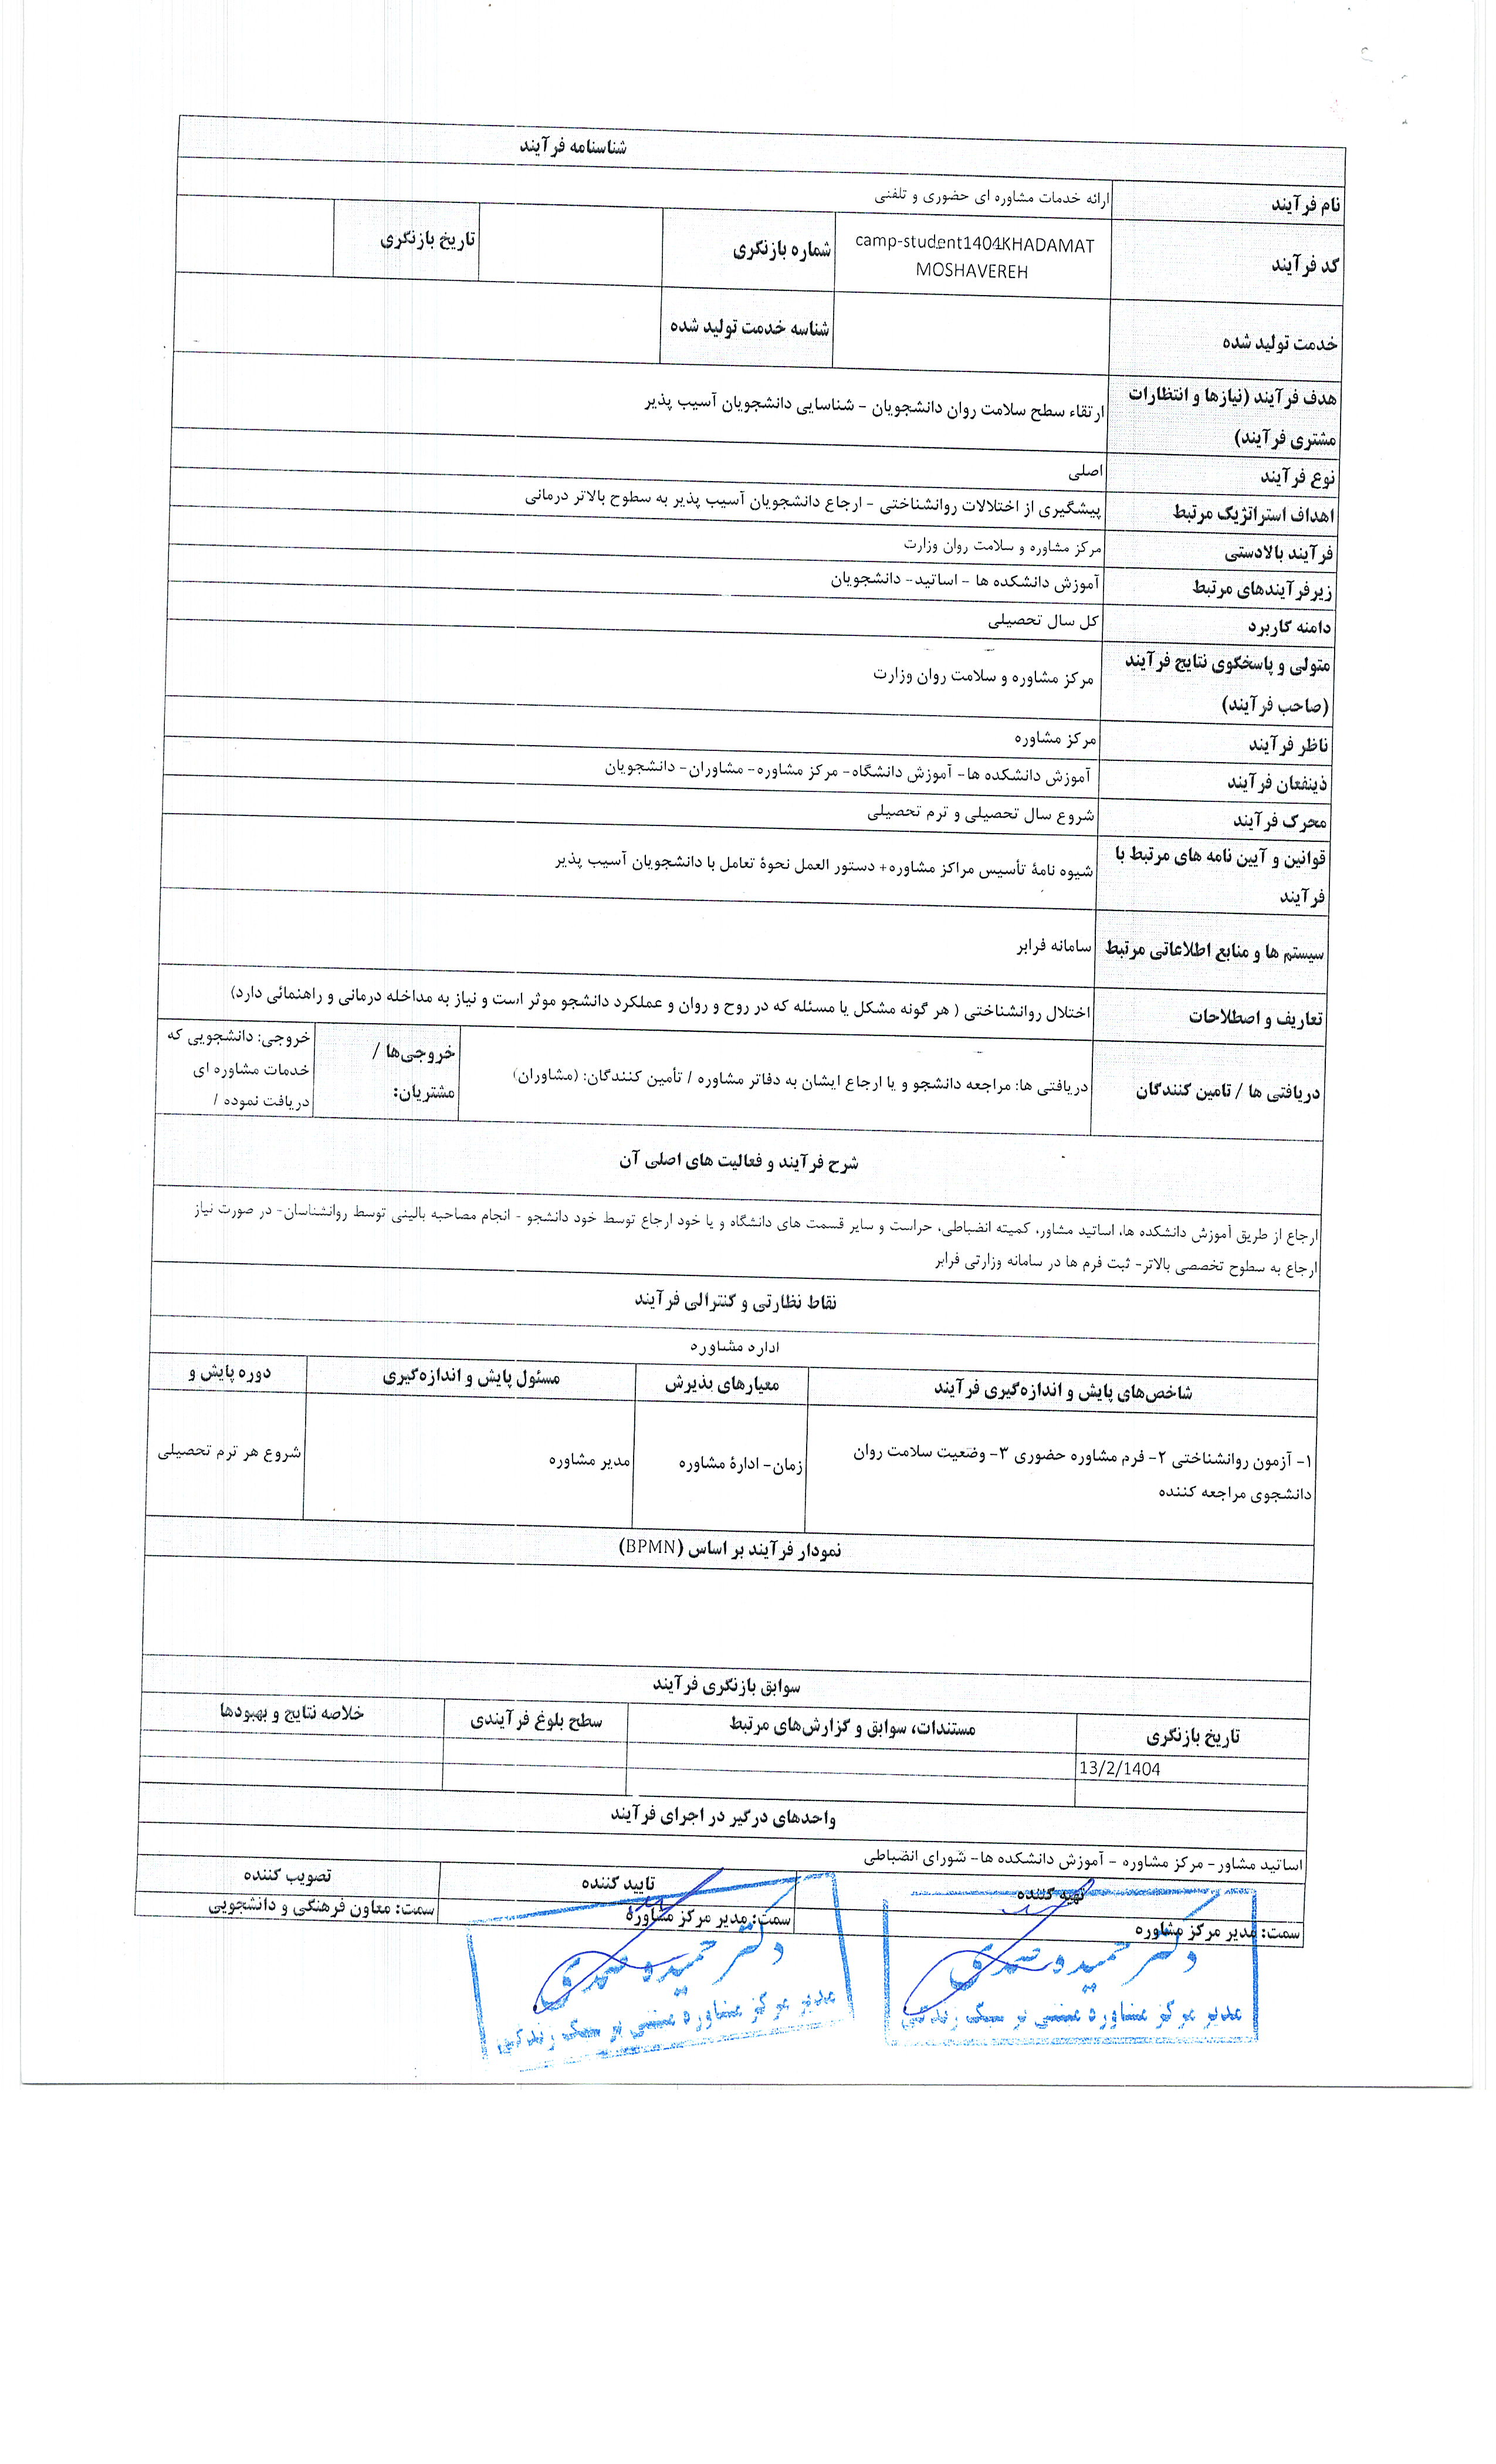 شناسنامه فرآیند
نام فرآیند
ارائه خدمات مشاوره ای حضوری و تلفنی
کد فرآیند
camp-student1404KHADAMAT
MOSHAVEREH
شماره بازنگری
تاریخ بازنگری
خدمت تولید شده
شناسه خدمت تولید شده
هدف فرآیند (نیازها و انتظارات
مشتری فرآیند)
ارتقاء سطح سلامت روان دانشجویان - شناسایی دانشجویان آسیب پذیر
نوع فرآیند
اصلی
اهداف استراتژیک مرتبط
پیشگیری از اختلالات روانشناختی - ارجاع دانشجویان آسیب پذیر به سطوح بالاتر درمانی
فرآیند بالادستی
مرکز مشاوره و سلامت روان وزارت
زیرفرآیندهای مرتبط
آموزش دانشکده ها - اساتید- دانشجویان
دامنه کاربرد
کل سال تحصیلی
متولی و پاسخگوی نتایج فرآیند
(صاحب فرآیند)
مرکز مشاوره و سلامت روان وزارت
ناظر فرآیند
مرکز مشاوره
ذینفعان فرآیند
آموزش دانشکده ها- آموزش دانشگاه- مرکز مشاوره- مشاوران- دانشجویان
محرک فرآیند
شروع سال تحصیلی و ترم تحصیلی
قوانین و آیین نامه های مرتبط با
فرآیند
شیوه نامۀ تأسیس مراکز مشاوره+ دستور العمل نحوۀ تعامل با دانشجویان آسیب پذیر
سیستم ها و منابع اطلاعاتی مرتبط
سامانه فرابر
تعاریف و اصطلاحات
اختلال روانشناختی ( هر گونه مشکل یا مسئله که در روح و روان و عملکرد دانشجو موثر است و نیاز به مداخله درمانی و راهنمائی دارد)
دریافتی ها / تامین کنندگان
دریافتی ها: مراجعه دانشجو و یا ارجاع ایشان به دفاتر مشاوره / تأمین کنندگان: (مشاوران)
خروجی‌ها /
مشتریان:
خروجی: دانشجویی که
خدمات مشاوره ای
دریافت نموده /
شرح فرآیند و فعالیت های اصلی آن
ارجاع از طریق آموزش دانشکده ها، اساتید مشاور، کمیته انضباطی، حراست و سایر قسمت های دانشگاه و یا خود ارجاع توسط خود دانشجو - انجام مصاحبه بالینی توسط روانشناسان- در صورت نیاز
ارجاع به سطوح تخصصی بالاتر- ثبت فرم ها در سامانه وزارتی فرابر
نقاط نظارتی و کنترالی فرآیند
اداره مشاوره
شاخص‌های پایش و اندازه‌گیری فرآیند
معیارهای پذیرش
مسئول پایش و اندازه‌گیری
دوره پایش و
۱- آزمون روانشناختی ۲- فرم مشاوره حضوری ۳- وضعیت سلامت روان
دانشجوی مراجعه کننده
زمان- ادارۀ مشاوره
مدیر مشاوره
شروع هر ترم تحصیلی
نمودار فرآیند بر اساس (BPMN)
سوابق بازنگری فرآیند
تاریخ بازنگری
مستندات، سوابق و گزارش‌های مرتبط
سطح بلوغ فرآیندی
خلاصه نتایج و بهبودها
13/2/1404
واحدهای درگیر در اجرای فرآیند
اساتید مشاور- مرکز مشاوره - آموزش دانشکده ها- شورای انضباطی
تهیه کننده
تایید کننده
تصویب کننده
سمت: مدیر مرکز مشاوره
سمت: مدیر مرکز مشاوره
سمت: معاون فرهنگی و دانشجویی
دکتر حمیده
مدیر مرکز مشاوره مبتنی بر سبک زندگی
دکتر حمیده
مدیر مرکز مشاوره مبتنی بر سبک زندگی